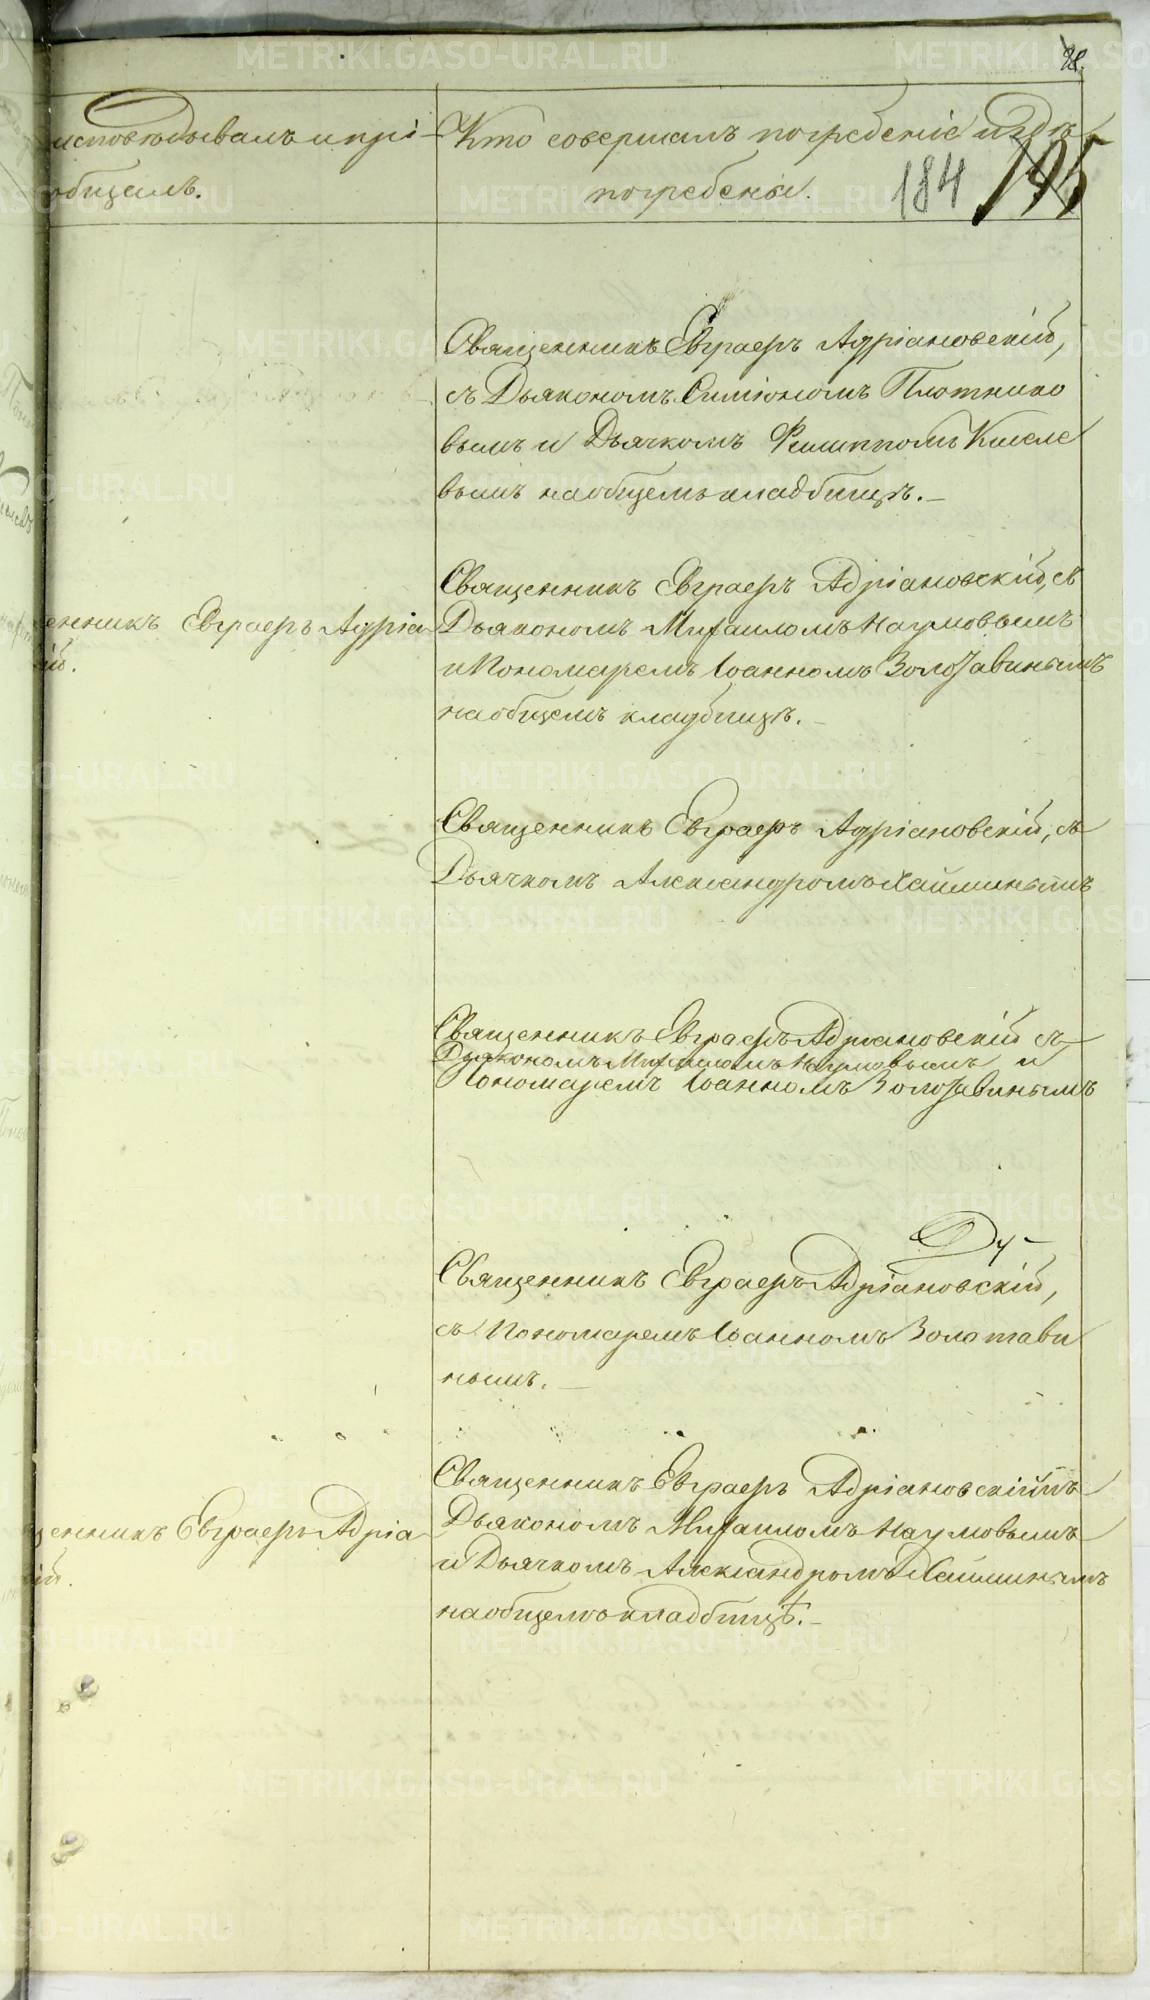 98.
исповѣдывалъ и прі-
общилъ.
Кто совершалъ погребеніе и гдѣ
погребены.
184 195
Священникъ Евграфъ Адріановскій,
съ Дьякономъ Симіономъ Плотнико
вымъ и Дьячкомъ Филиппомъ Киселе
вымъ на общемъ кладбищѣ.
енникъ Евграфъ Адріа
ій.
Священникъ Евграфъ Адріановскій, съ
Дьякономъ Михаиломъ Наумовымъ
и Пономаремъ Іоанномъ Золотавинымъ
на общемъ кладбищѣ.
Священникъ Евграфъ Адріановскій, съ
Дьячкомъ Александромъ
Священникъ Евграфъ Адріановскій съ
Дьякономъ Михаиломъ Наумовымъ и
Пономаремъ Іоанномъ Золотавинымъ
Священникъ Евграфъ Адріановскій,
съ Пономаремъ Іоанномъ Золотави
нымъ.
щенникъ Евграфъ Адріа
ій.
Священникъ Евграфъ Адріановскій съ
Дьякономъ Михаиломъ Наумовымъ
и Дьячкомъ Александромъ
на общемъ кладбищѣ.
METRIKI.GASO-URAL.RU